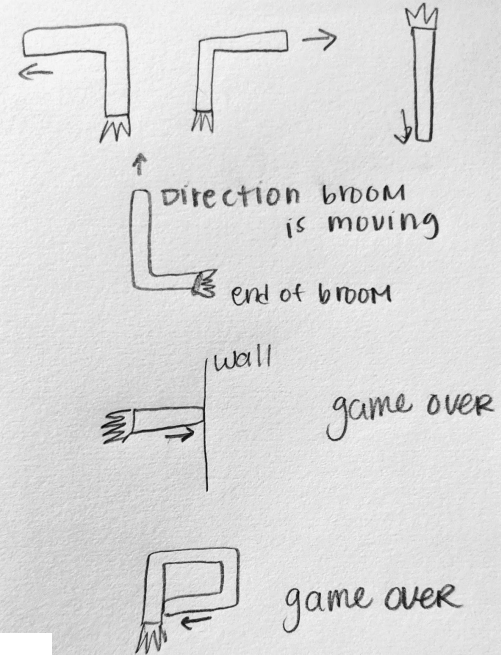 Direction broom
is moving
end of broom
wall
game over
game over